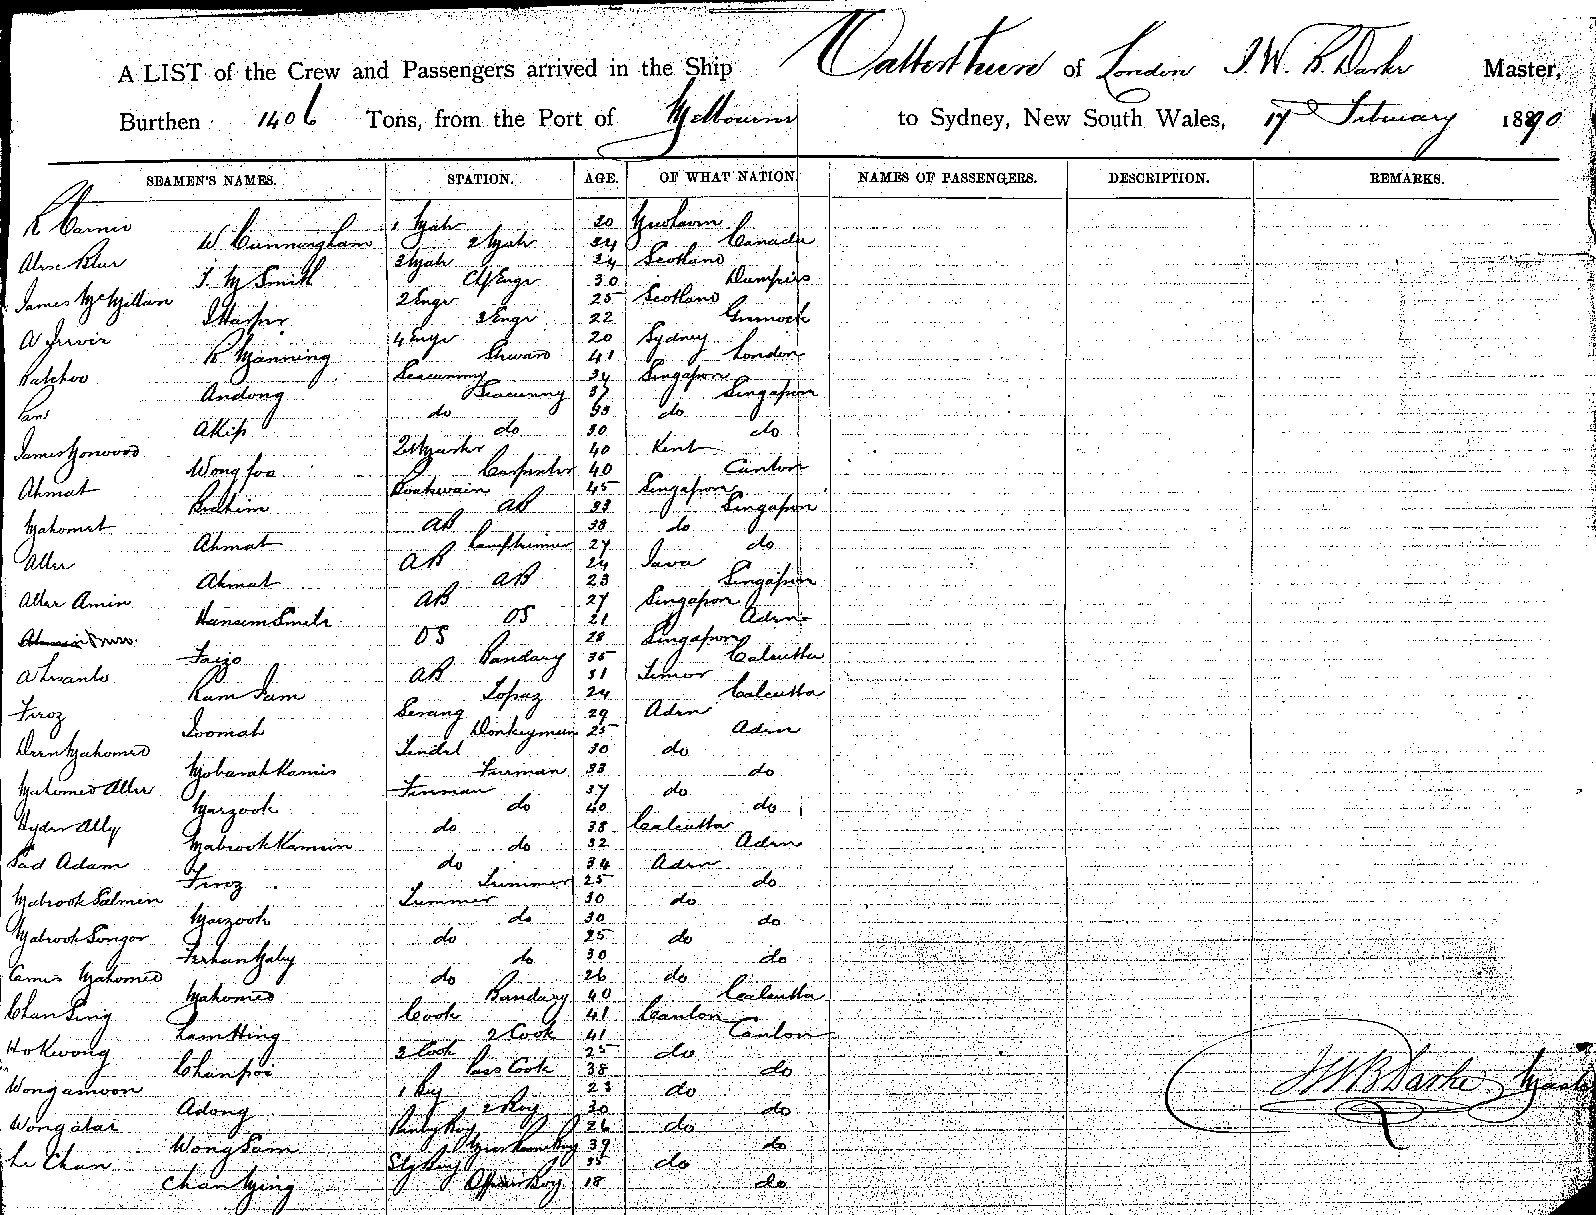 A LIST of the Crew and Passengers arrived in the Ship Catterthun of London J. W. B. Darke Master,
Burthen 1406 Tons, from the Port of Melbourne to Sydney, New South Wales, 17 February 1890
SEAMEN'S NAMES. STATION. AGE. OF WHAT NATION. NAMES OF PASSENGERS. DESCRIPTION. REMARKS.
1 Mate 20
W Cunningham 2 Mate 24 Canada
Alex Blair 3 Mate 24 Scotland
J. M Smith Cf Engr 30 Dumfries
James McMillan 2 Engr 25 Scotland
J Harper 3 Engr 22 Greenock
A Jervis 4 Engr 20 Sydney
R Manning Steward 41 London
Seacunny 34 Singapore
Andong Seacunny 37 Singapore
do 33 do
Akip do 30 do
James Horwood 40 Kent
Wong foo Carpenter 40 Canton
Ahmat Boatswain 45 Singapore
Brahim AB 33 Singapore
Mahomet AB 38 do
Ahmat Lamptrimer 27 do
Allee AB 24 Java
Ahmat AB 23 Singapore
Allee Amin AB 27 Singapore
OS 21 Aden
OS 28 Singapore
Faizo Bandary 35 Calcutta
AB 31 Timor
Ram Jam Topaz 24 Calcutta
Firoz Serang 29 Aden
Joomah Donkeyman 25 Aden
Deen Mahomed Tindel 30 do
Mobarak Kamis Fireman 33 do
Mahomed Allee Fireman 37 do
Marzook do 40 do
Hyder Ally do 38 Calcutta
Mabrook Kamsin do 32 Aden
Said Adam do 34 Aden
Firoz Trimmer 25 do
Mabrook Salmen Trimmer 30 do
Marzook do 30 do
Mabrook Songor do 25 do
Ferhan Maby do 30 do
Mahomed do 26 do
Mahomed Bandary 40 Calcutta
Chan Sing Cook 41 Canton
Lam Hing 2 Cook 41 Canton
Ho Kwong 3 Cook 25 do
Chanpoi Pass Cook 38 do
Wong amoon 1 Boy 23 do
Adong 2 Boy 30 do
Wong atai Pantry Boy 26 do
Wong Sam Mess Room Boy 39 do
Le Chan Stg Boy 35 do
Chan Ming Boy 18 do
J W B Darke Master